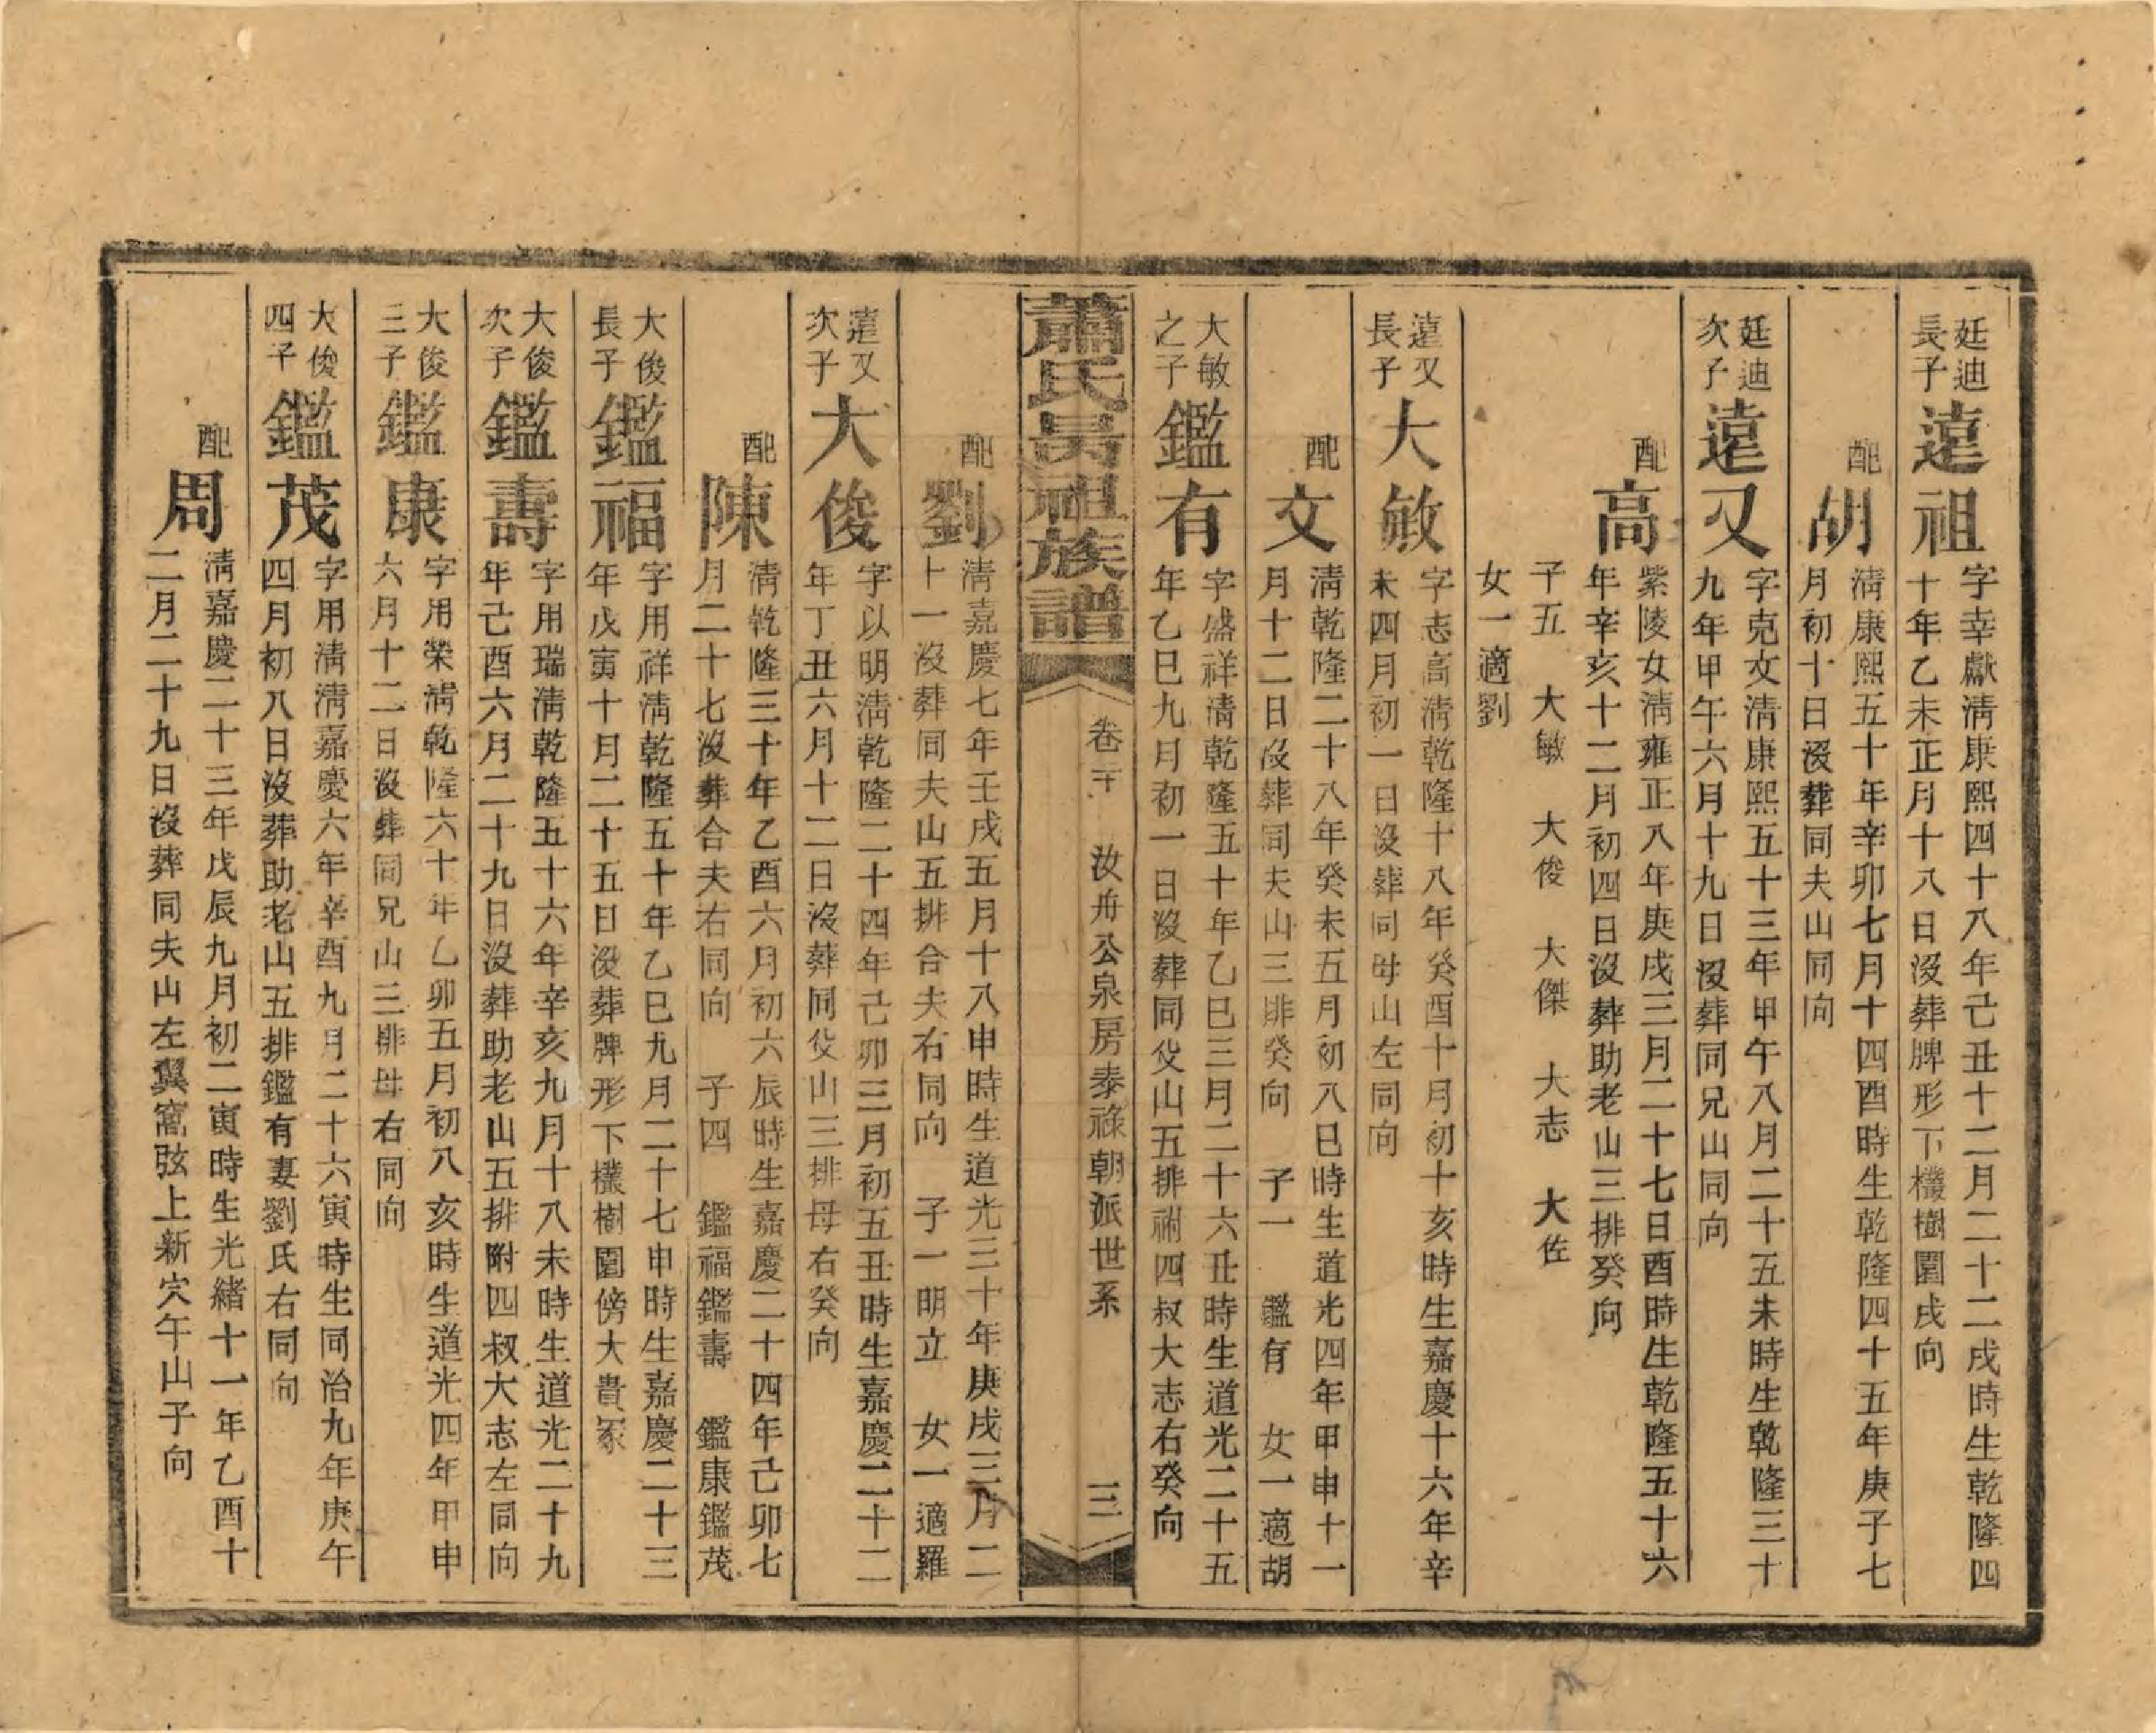 廷迪
長子
遠祖
字幸獻淸康熙四十八年己丑十二月二十二戌時生乾隆四
十年乙未正月十八日沒葬牌形下欉樹園戌向
配
胡
淸康熙五十年辛卯七月十四酉時生乾隆四十五年庚子七
月初十日沒葬同夫山同向
廷迪
次子
遠又
字克文淸康熙五十三年甲午八月二十五未時生乾隆三十
九年甲午六月十九日沒葬同兄山同向
配
高
紫陵女淸雍正八年庚戌三月二十七日酉時生乾隆五十六
年辛亥十二月初四日沒葬助老山三排癸向
子五 大敏 大俊 大傑 大志 大佐
女一適劉
遠又
長子
大敏
字志高淸乾隆十八年癸酉十月初十亥時生嘉慶十六年辛
未四月初一日沒葬同母山左同向
配
文
淸乾隆二十八年癸未五月初八巳時生道光四年甲申十一
月十二日沒葬同夫山三排癸向 子一 鑑有 女一適胡
大敏
之子
鑑有
字盛祥淸乾隆五十年乙巳三月二十六丑時生道光二十五
年乙巳九月初一日沒葬同父山五排祔四叔大志右癸向
蕭氏昺祖族譜
卷二十 汝舟公泉房泰祿朝派世系 三
配
劉
淸嘉慶七年壬戌五月十八申時生道光三十年庚戌三月二
十一沒葬同夫山五排合夫右同向 子一明立 女一適羅
遠又
次子
大俊
字以明淸乾隆二十四年己卯三月初五丑時生嘉慶二十二
年丁丑六月十二日沒葬同父山三排母右癸向
配
陳
淸乾隆三十年乙酉六月初六辰時生嘉慶二十四年己卯七
月二十七沒葬合夫右同向 子四 鑑福鑑壽 鑑康鑑茂
大俊
長子
鑑福
字用祥淸乾隆五十年乙巳九月二十七申時生嘉慶二十三
年戊寅十月二十五日沒葬牌形下欉樹園傍大貴冢
大俊
次子
鑑壽
字用瑞淸乾隆五十六年辛亥九月十八未時生道光二十九
年己酉六月二十九日沒葬助老山五排附四叔大志左同向
大俊
三子
鑑康
字用榮淸乾隆六十年乙卯五月初八亥時生道光四年甲申
六月十二日沒葬同兄山三排母右同向
大俊
四子
鑑茂
字用淸淸嘉慶六年辛酉九月二十六寅時生同治九年庚午
四月初八日沒葬助老山五排鑑有妻劉氏右同向
配
周
淸嘉慶二十三年戊辰九月初二寅時生光緒十一年乙酉十
二月二十九日沒葬同夫山左翼窩弦上新穴午山子向